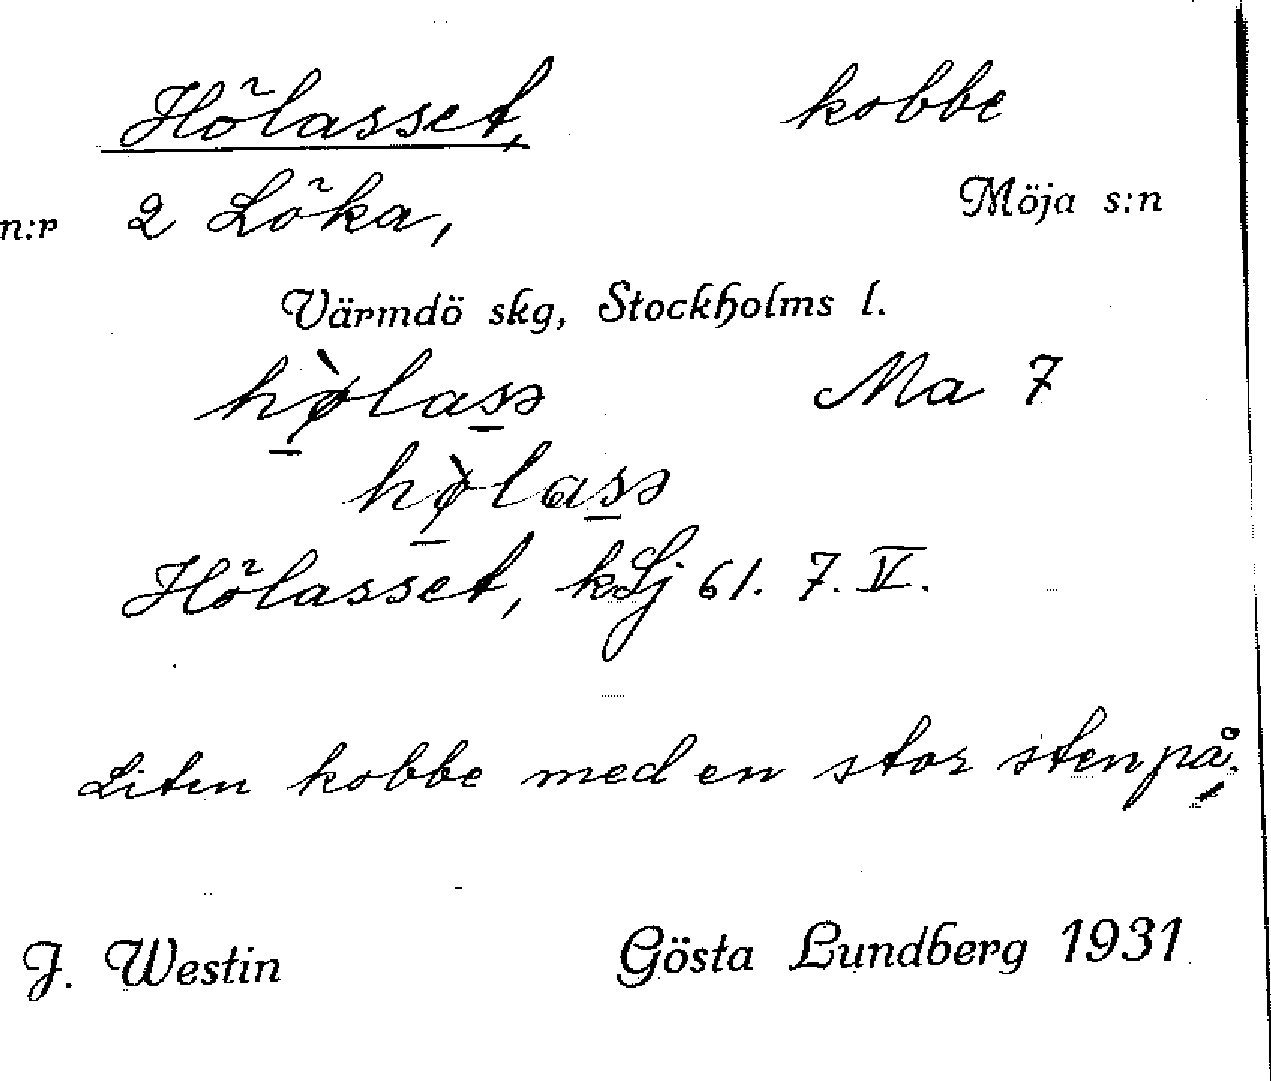 Hölasset, kobbe
n:r 2 Löka, Möja s:n
Värmdö skg, Stockholms l.
hø̀lass Ma 7
hø̀lass
Hölasset, kLj 61. 7. V.
Liten kobbe med en stor sten på.
J. Westin Gösta Lundberg 1931